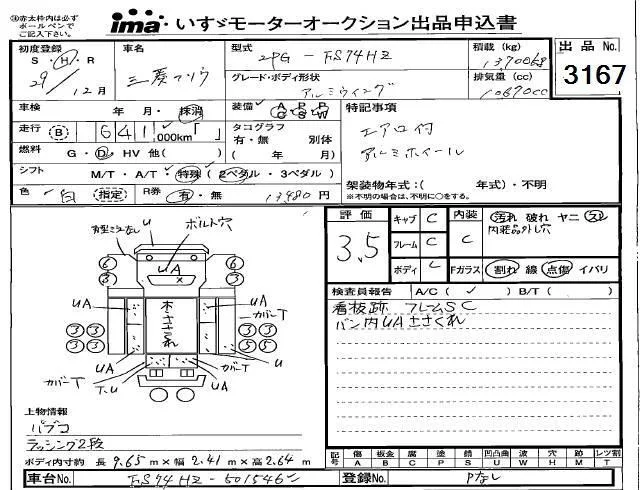 ※赤太枠内は必ず
ボールペンで
ご記入下さい。
ima いすゞモーターオークション出品申込書
初度登録 S・H・R 29/12月
車名 三菱フソウ
型式 2PG-FS74HZ
積載(kg) 13700
出品No. 3167
グレード・ボディ形状 アルミウイング
排気量(cc) 10670cc
車検 年・月・抹消
装備 A/C P/S P/W
特記事項
エアロ付
アルミホイール
走行 B 641,000km「 」
タコグラフ 有・無 別体
( 年 月)
燃料 G・D・HV 他( )
シフト M/T・A/T・特殊(2ペダル・3ペダル)
架装物年式:( 年式)・不明
※不明の場合は、不明に○をする。
色 白 (指定) R券 有・無 13480円
右型ミラーなし
u
ボルト穴
評価 3.5
キャブ C
フレーム C
ボディ C
内装 C
汚れ 破れ ヤニ スレ
内装品外し穴
Fガラス 割れ 線 点傷 イバリ
検査員報告 A/C(✓) B/T( )
看板跡 フレームSC
バン内UAささくれ
6 6
3 3
uA
uA
カバーT
木ささくれ
uA
3 3
3 3
3 3
5 5
uA
u
カバーT
T、u
カバーT
上物情報
パブコ
ラッシング2段
ボディ内寸約 長 9.65 m×幅 2.41 m×高 2.64 m
記号 傷A 板金B 腐C 塗P 錆S 凹凸曲U 波W 穴H 跡M レツ割T
車台No. FS74HZ-501546
鍵書No. Pなし